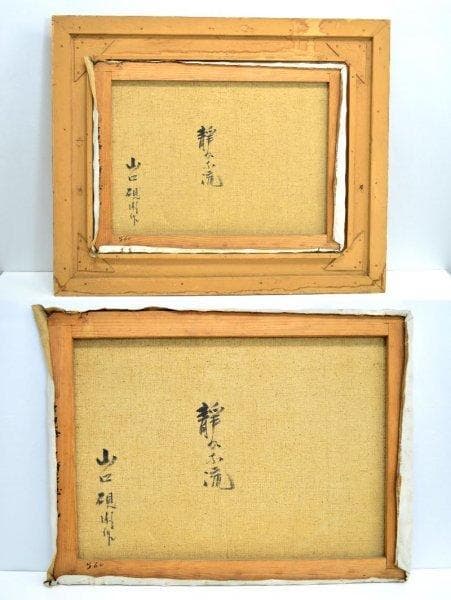 静かな流
山口硯 作
静かな流
山口硯 作